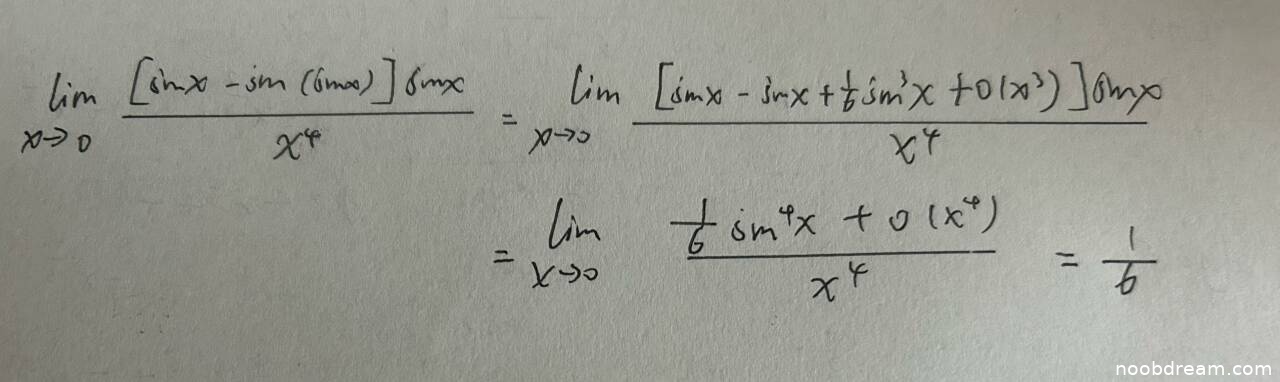 lim x→0 [sinx - sin(sinx)]sinx / x⁴ = lim x→0 [sinx - sinx + 1/6 sin³x + o(x³)]sinx / x⁴
= lim x→0 1/6 sin⁴x + o(x⁴) / x⁴ = 1/6
noobdream.com